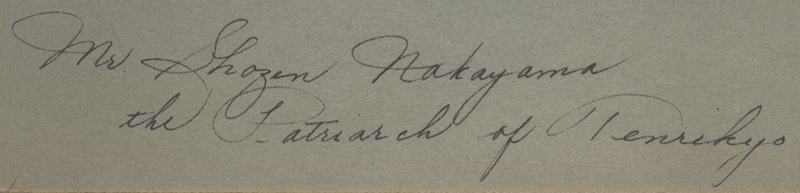 Mr. Shozen Nakayama
the Patriarch of Tenrikyo